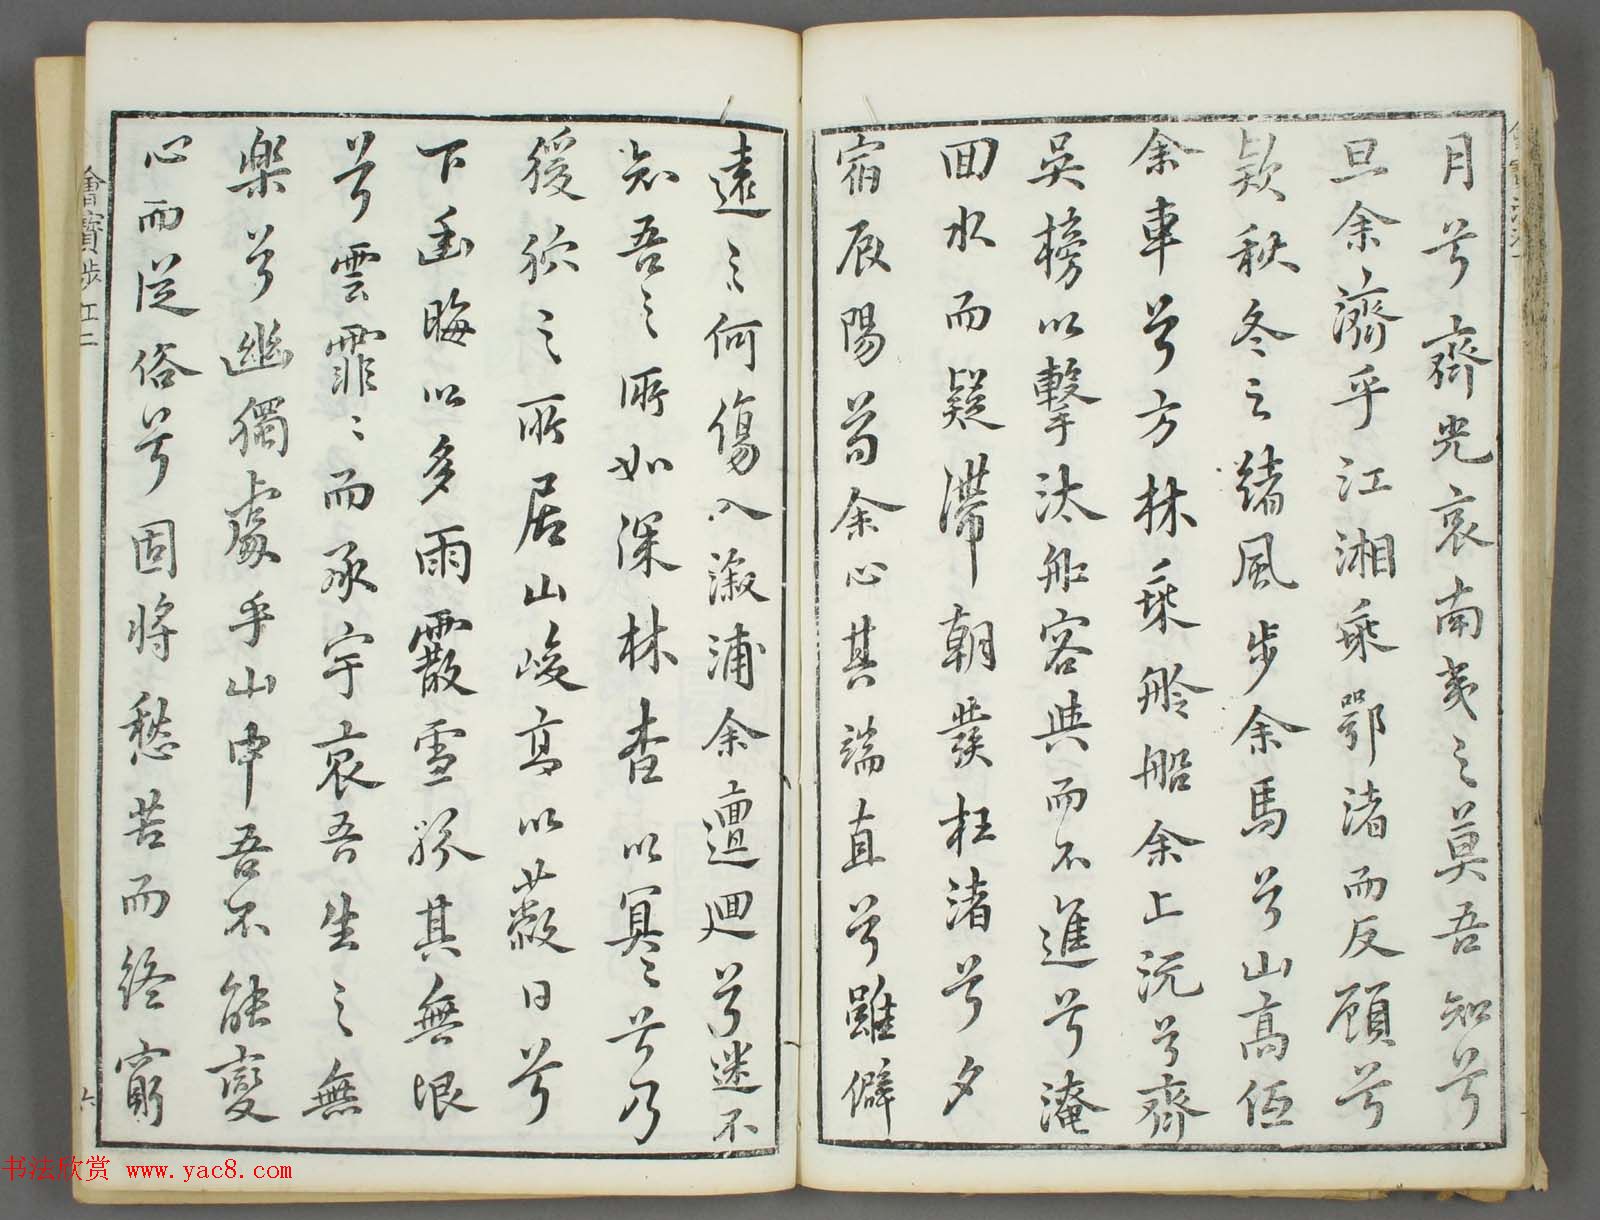 月兮齊光哀南夷之莫吾知兮
旦余濟乎江湘乘鄂渚而反顧兮
欵秋冬之緒風步余馬兮山高低
余車兮方林乘舲船余上沅兮齊
吳榜以擊汰船容與而不進兮淹
回水而疑滯朝發枉渚兮夕
宿辰陽苟余心其端直兮雖僻
遠之何傷入漵浦余邅迴兮迷不
知吾之所如深林杳以冥冥兮乃
猨狖之所居山峻高以蔽日兮
下幽晦以多雨霰雪紛其無垠
兮雲霏霏而承宇哀吾生之無
樂兮幽獨處乎山中吾不能變
心而從俗兮固將愁苦而終窮
六
书法欣赏 www.yac8.com